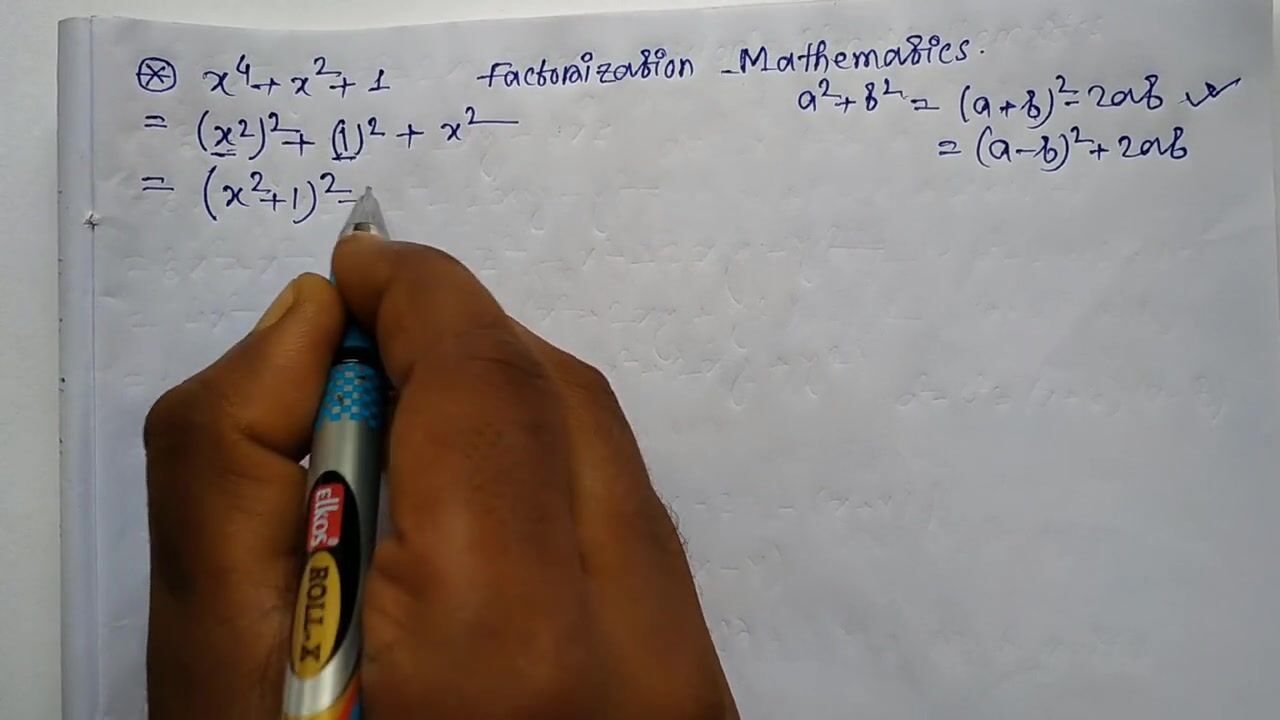 ⊗ x⁴ + x² + 1 Factorization - Mathematics.
a² + b² = (a + b)² - 2ab ✓
= (x²)² + (1)² + x²
= (a - b)² + 2ab
= (x² + 1)² -
elkos
ROLL-X